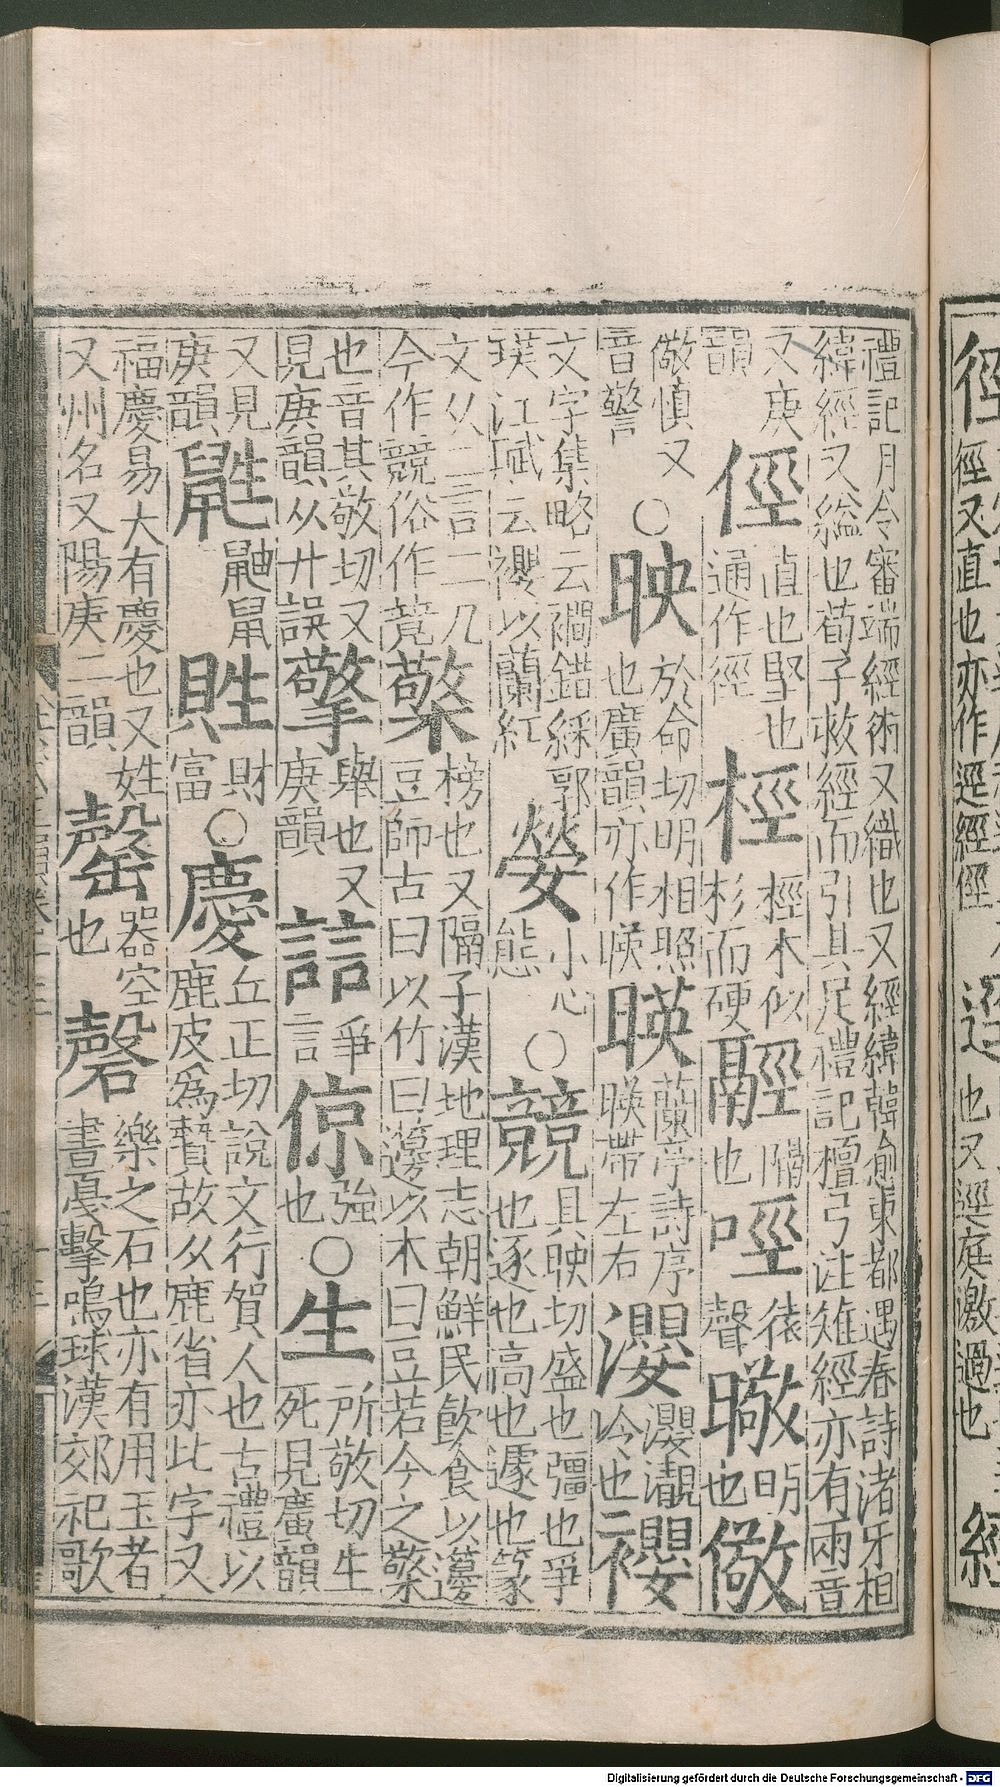 徑 徑又直也亦作逕經徑
逕 也又逕庭激過也
禮記月令審端經術又織也又經緯韓愈東都遇春詩渚牙相
緯經又縊也荀子救經而引其足禮記檀弓注雉經亦有兩音
又庚韻 俓 直也堅也通作徑 桱 桱木似杉而硬 隔也 猿聲 曔 明也 儆
儆慎又音警 ○ 映 於命切明相照也廣韻亦作暎 暎 蘭亭詩序暎帶左右 瀴 冷也二
文字集略云襉錯綵郭璞江賦云以蘭紅 小心態 ○ 競 具映切盛也彊也爭也逐也高也遽也篆
文从二言二几今作競俗作竸 檠 榜也又隔子漢地理志朝鮮民飲食以籩豆師古曰以竹曰籩以木曰豆若今之檠
也音其敬切又見庚韻从廾誤 擎 舉也又庚韻 誩 爭言 倞 強也 ○ 生 所敬切生死見廣韻
又見庚韻 鼪 鼬鼠 貹 財富 ○ 慶 丘正切說文行賀人也古禮以鹿皮爲贄故从鹿省亦此字又
福慶易大有慶也又姓又州名又陽庚二韻 罄 器空也 磬 樂之石也亦有用玉者書戛擊鳴球漢郊祀歌
Digitalisierung gefördert durch die Deutsche Forschungsgemeinschaft - DFG